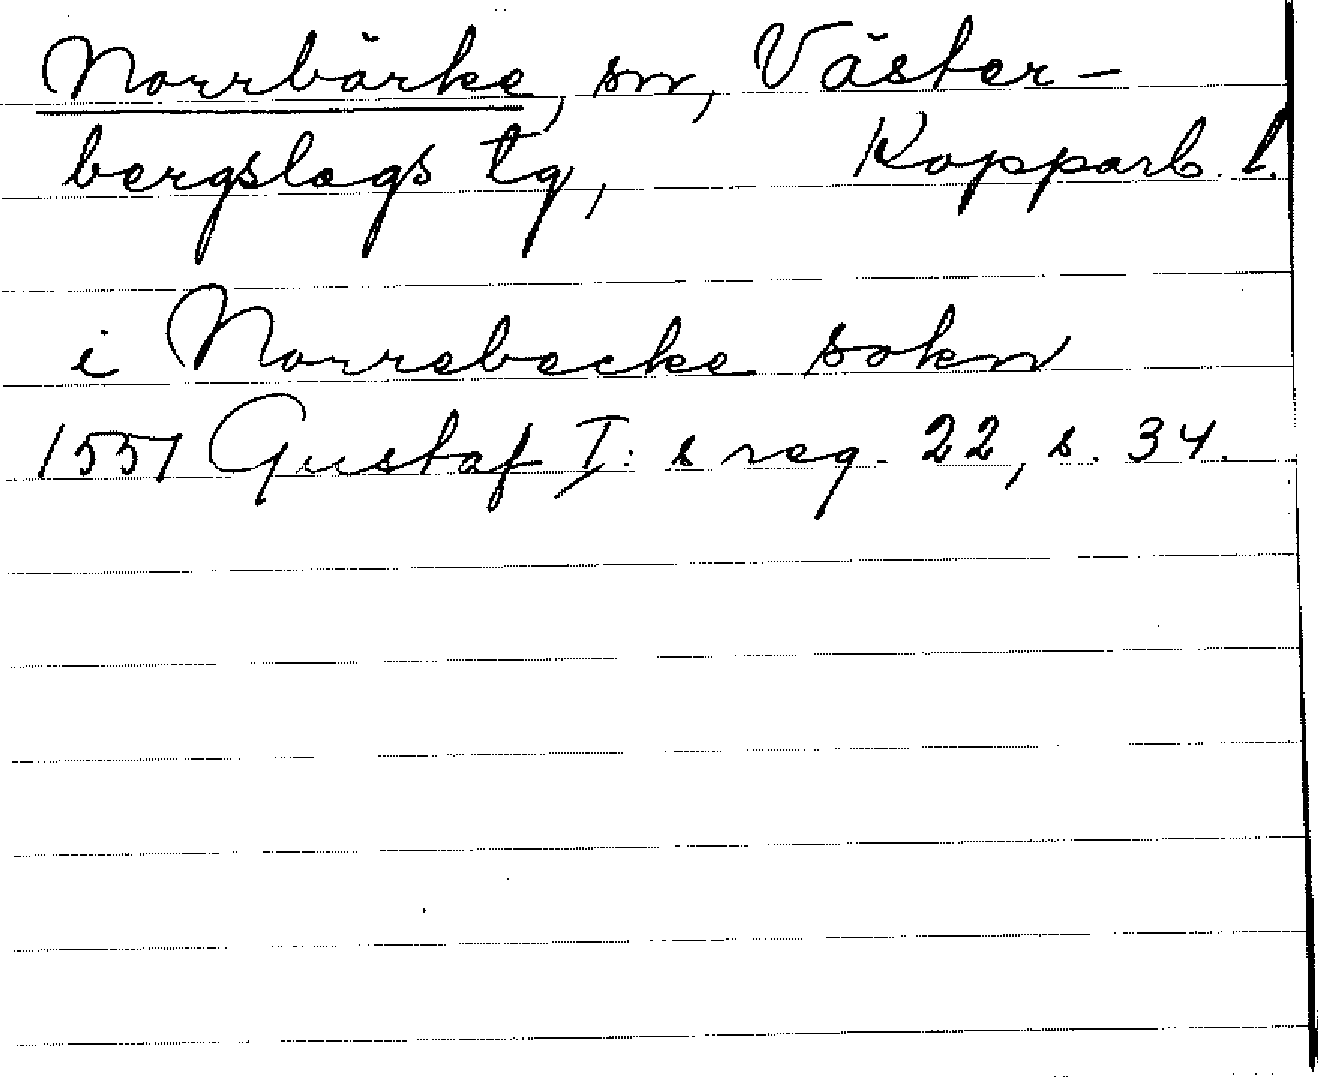 Norrbärke, sn, Väster-
bergslags tg, Kopparb. l.
i Norrebecke sokn
1551 Gustaf I:s reg. 22, s. 34.